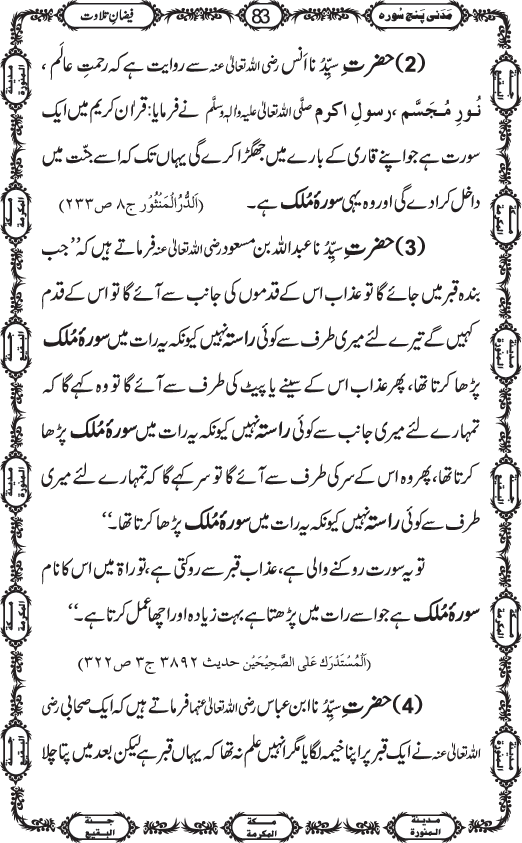 مَدَنی پَنج سُورہ
83
فیضانِ تلاوت
(2) حضرتِ سیِّدُنا اَنَس رضی اللہ تعالیٰ عنہ سے روایت ہے کہ رحمتِ عالَم ،
نُورِ مُجَسَّم ، رسولِ اکرم صلَّی اللہ تعالیٰ علیہ واٰلہٖ وسلَّم نے فرمایا: قراٰنِ کریم میں ایک
سورت ہے جو اپنے قاری کے بارے میں جھگڑا کرے گی یہاں تک کہ اسے جنّت میں
داخل کرا دے گی اور وہ یہی سورۂ مُلک ہے۔ (اَلدُّرُّ الْمَنْثُوْر ج۸ ص۲۳۳)
(3) حضرتِ سیِّدُنا عبداللہ بن مسعود رضی اللہ تعالیٰ عنہ فرماتے ہیں کہ ’’جب
بندہ قبر میں جائے گا تو عذاب اس کے قدموں کی جانب سے آئے گا تو اس کے قدم
کہیں گے تیرے لئے میری طرف سے کوئی راستہ نہیں کیونکہ یہ رات میں سورۂ مُلک
پڑھا کرتا تھا، پھر عذاب اس کے سینے یا پیٹ کی طرف سے آئے گا تو وہ کہے گا کہ
تمہارے لئے میری جانب سے کوئی راستہ نہیں کیونکہ یہ رات میں سورۂ مُلک پڑھا
کرتا تھا، پھر وہ اس کے سر کی طرف سے آئے گا تو سر کہے گا کہ تمہارے لئے میری
طرف سے کوئی راستہ نہیں کیونکہ یہ رات میں سورۂ مُلک پڑھا کرتا تھا۔‘‘
تو یہ سورت روکنے والی ہے، عذابِ قبر سے روکتی ہے، توراۃ میں اس کا نام
سورۂ مُلک ہے جو اسے رات میں پڑھتا ہے بہت زیادہ اور اچھا عمل کرتا ہے۔‘‘
(اَلْمُسْتَدْرَك عَلَى الصَّحِيْحَيْن حديث ۳۸۹۲ ج۳ ص۳۲۲)
(4) حضرتِ سیِّدُنا ابن عباس رضی اللہ تعالیٰ عنہما فرماتے ہیں کہ ایک صحابی رضی
اللہ تعالیٰ عنہ نے ایک قبر پر اپنا خیمہ لگایا مگر انہیں علم نہ تھا کہ یہاں قبر ہے لیکن بعد میں پتا چلا
مدینۃ المنورۃ
مکۃ المکرمۃ
جنۃ البقیع
مدینۃ المنورۃ
مکۃ المکرمۃ
جنۃ البقیع
جنۃ البقیع
مکۃ المکرمۃ
مدینۃ المنورۃ
جنۃ البقیع
مکۃ المکرمۃ
مدینۃ المنورۃ
مدینۃ المنورۃ
مکۃ المکرمۃ
جنۃ البقیع